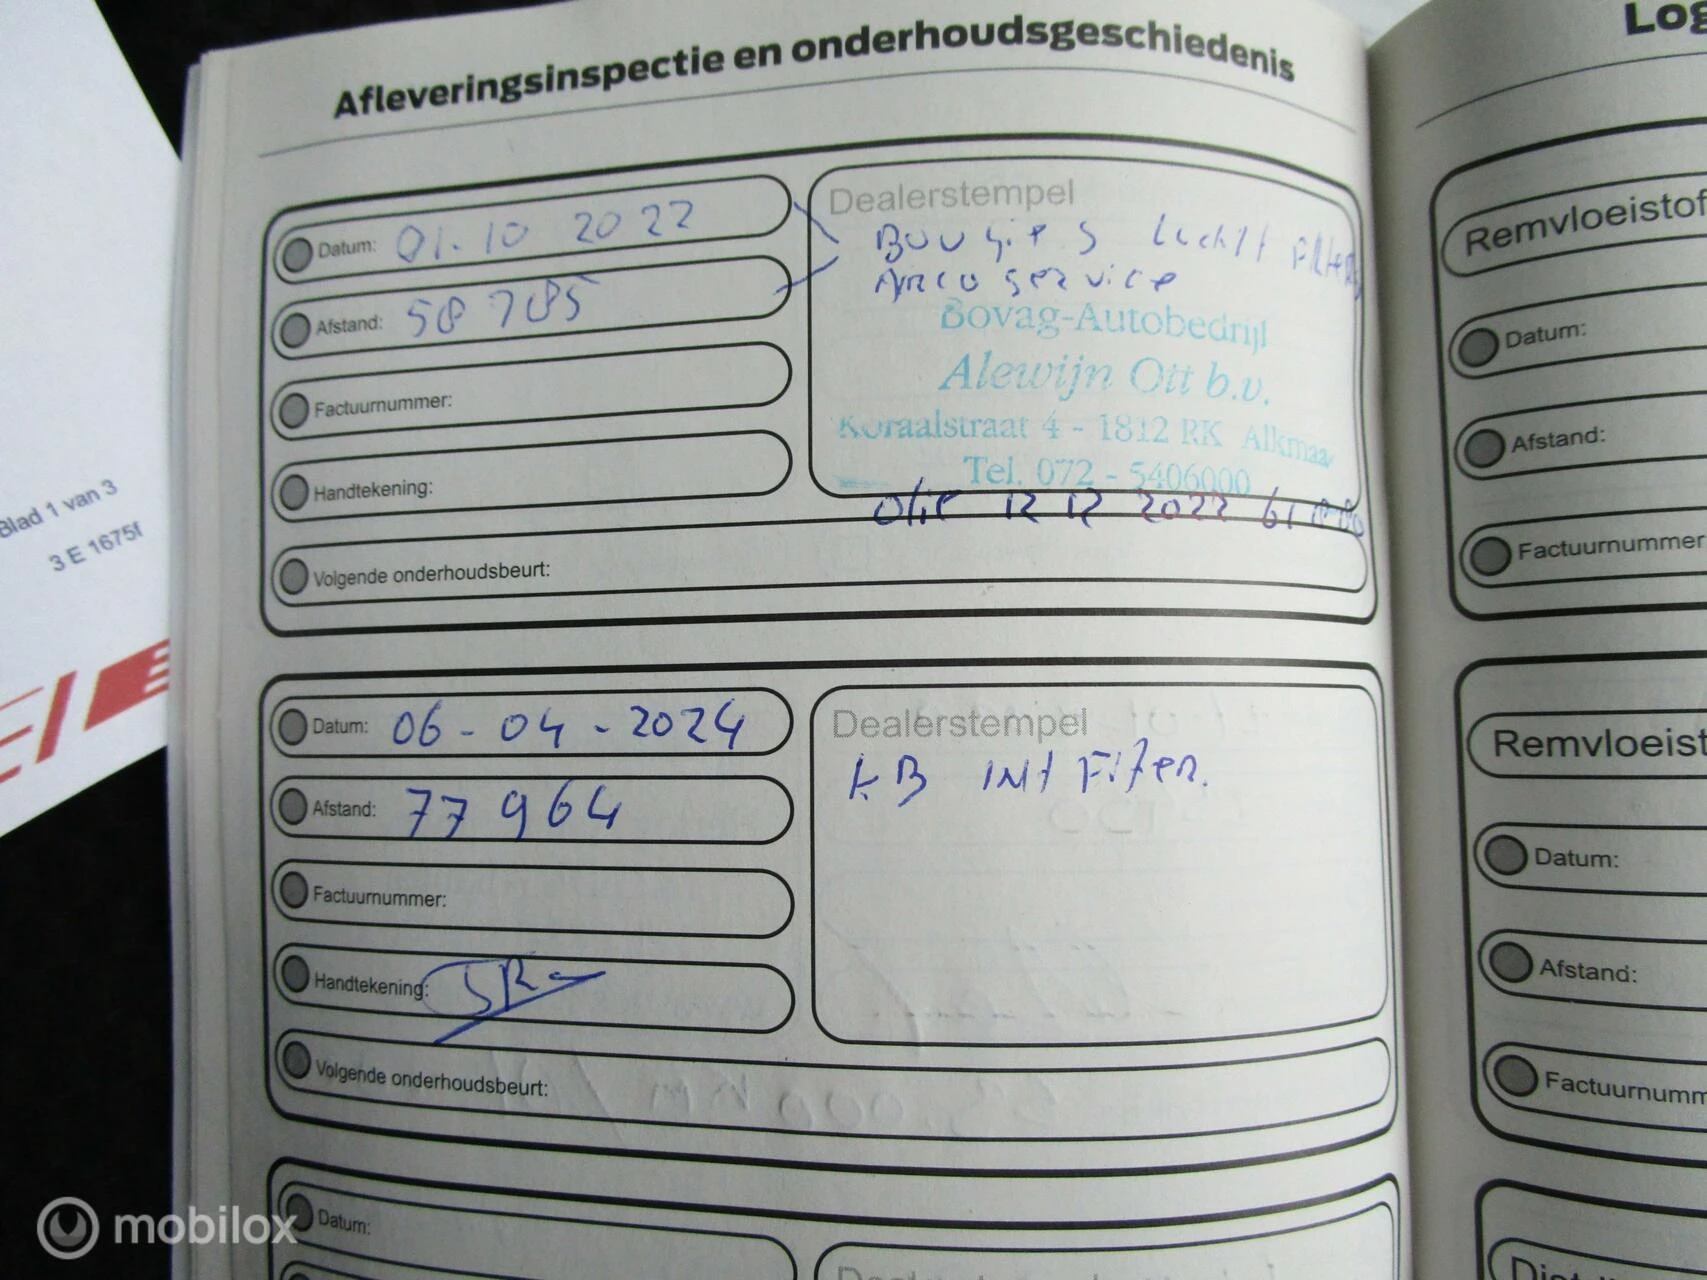 Afleveringsinspectie en onderhoudsgeschiedenis
Datum: 01-10 2022
Afstand: 58 785
Factuurnummer:
Handtekening:
Dealerstempel
Bougies Lucht Filter
Airco service
Bovag-Autobedrijf
Alewijn Ott b.v.
Koraalstraat 4 - 1812 RK Alkmaar
Tel. 072 - 5406000
Olie 12 12 2022
Volgende onderhoudsbeurt:
Datum: 06-04-2024
Afstand: 77 964
Factuurnummer:
Handtekening:
Dealerstempel
KB INt Filter.
Volgende onderhoudsbeurt:
Datum:
Log
Remvloeistof
Datum:
Afstand:
Factuurnummer
Remvloeist
Datum:
Afstand:
Factuurnumm
Blad 1 van 3
3 E 1675f
mobilox